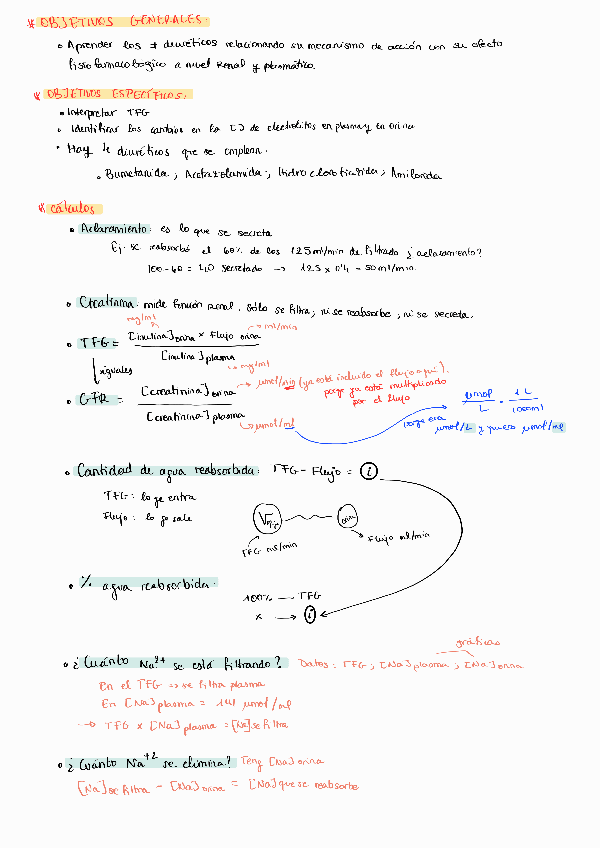 * OBJETIVOS GENERALES.
• Aprender los ≠ diuréticos relacionando su mecanismo de acción con su efecto
fisiofarmacologico a nivel renal y plasmático.
* OBJETIVOS ESPECÍFICOS:
• Interpretar TFG
• Identificar los cambios en la [] de electrolitos en plasma y en orina
• Hay 4 diuréticos que se emplean.
• Bumetanida; Acetazolamida; Hidroclorotiazida; Amilorida
* CÁLCULOS
• Aclaramiento: es lo que se secreta
Ej: se reabsorbe el 60% de los 125ml/min de filtrado ¿aclaramiento?
100-60 = 40 secretado → 125 x 0'4 = 50ml/min.
• Creatinina: mide función renal. Sólo se filtra; ni se reabsorbe, ni se secreta.
mg/ml
• TFG = [inulina]orina x Flujo orina → ml/min
[inulina]plasma → mg/ml
iguales
• GFR = [creatinina]orina → μmol/min (ya está incluido el flujo aquí).
porqe ya está multiplicando
por el flujo
[creatinina]plasma → μmol/ml
μmol/L · 1L/1000ml
porqe era
μmol/L y quiero μmol/ml
• Cantidad de agua reabsorbida: TFG - Flujo = i
TFG: lo qe entra
Flujo: lo qe sale
orina
TFG ml/min
Flujo ml/min
• % agua reabsorbida:
100% — TFG
x → i
gráficas
• ¿Cuánto Na²⁺ se está filtrando? Datos: TFG; [Na]plasma; [Na]orina
En el TFG → se filtra plasma
En [Na]plasma = 141 μmol/ml
→ TFG x [Na]plasma = [Na]se filtra
• ¿Cuánto Na⁺² se elimina? Teng [Na]orina
[Na]se filtra - [Na]orina = [Na]que se reabsorbe